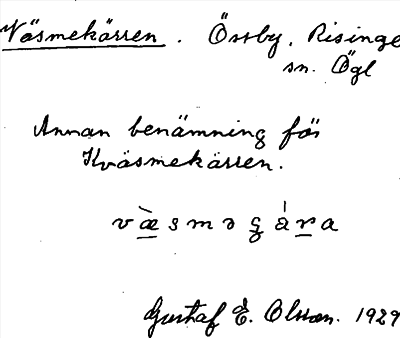 Väsmekärren. Össby, Risinge
sn. Ögl
Annan benämning för
Kväsmekärren.
Gustaf E. Olsson. 1929